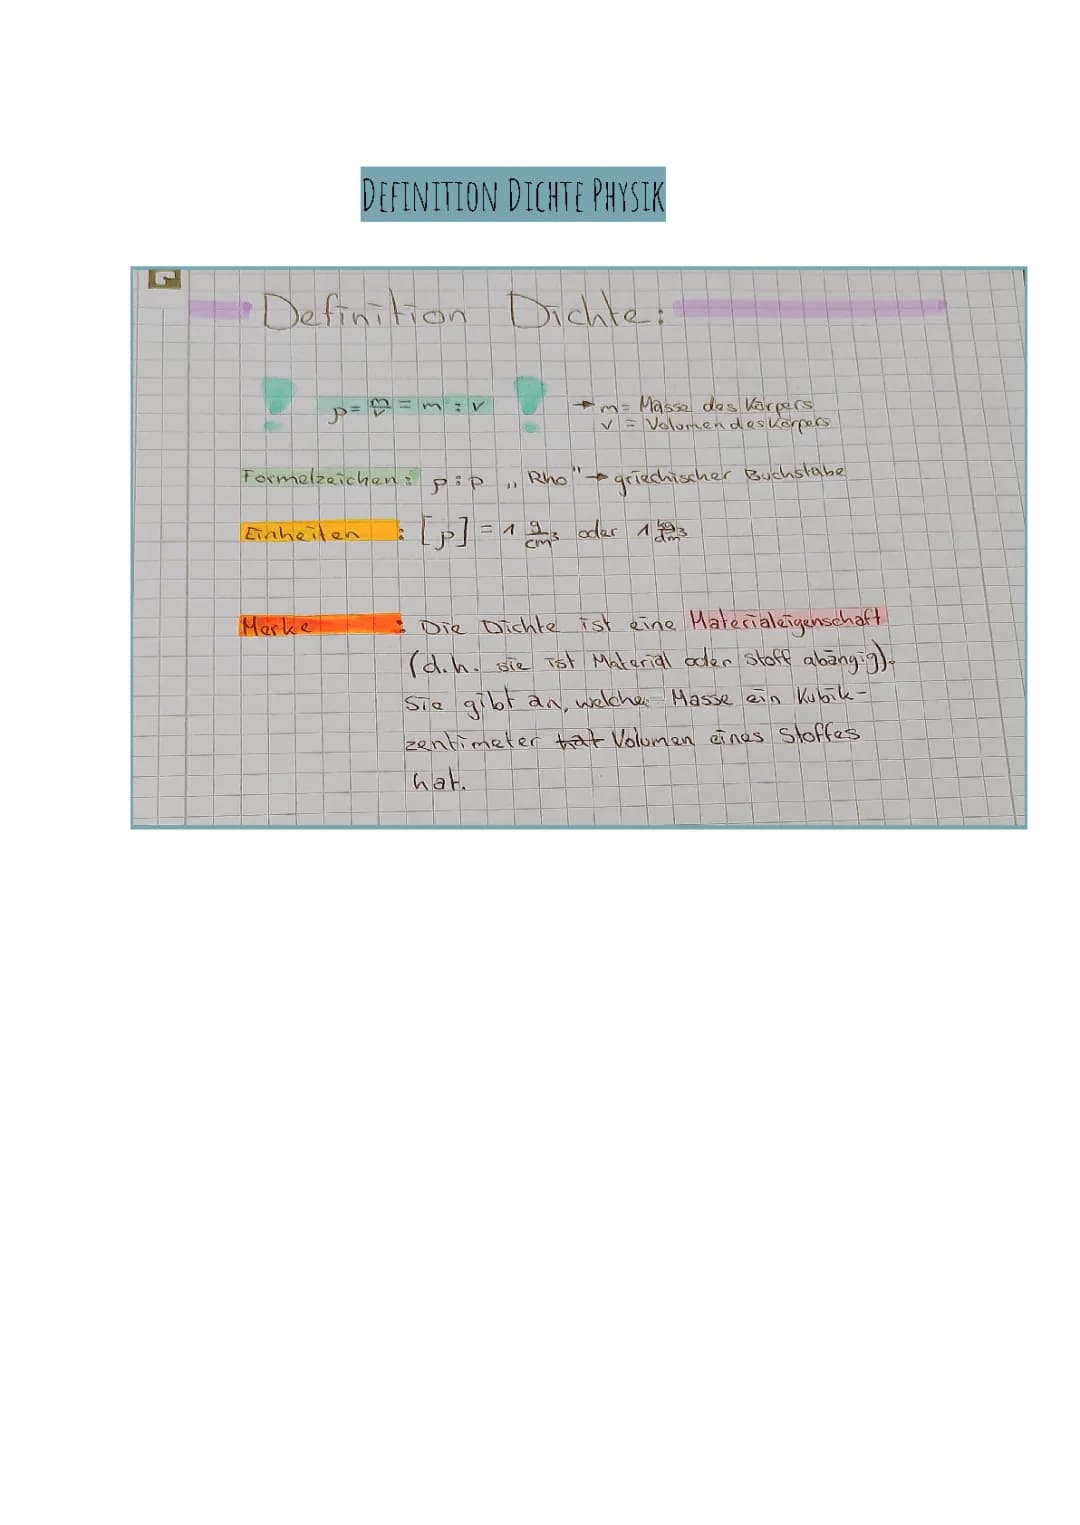 DEFINITION DICHTE PHYSIK
Definition Dichte:
! ρ = m/v = m : v ! → m = Masse des Körpers
v = Volumen des Körpers
Formelzeichen: ρ : p „Rho" → griechischer Buchstabe
Einheiten : [ρ] = 1 g/cm³ oder 1 kg/dm³
Merke : Die Dichte ist eine Materialeigenschaft
(d.h. sie ist Material oder Stoff abängig).
Sie gibt an, welche Masse ein Kubik-
zentimeter hat Volumen eines Stoffes
hat.